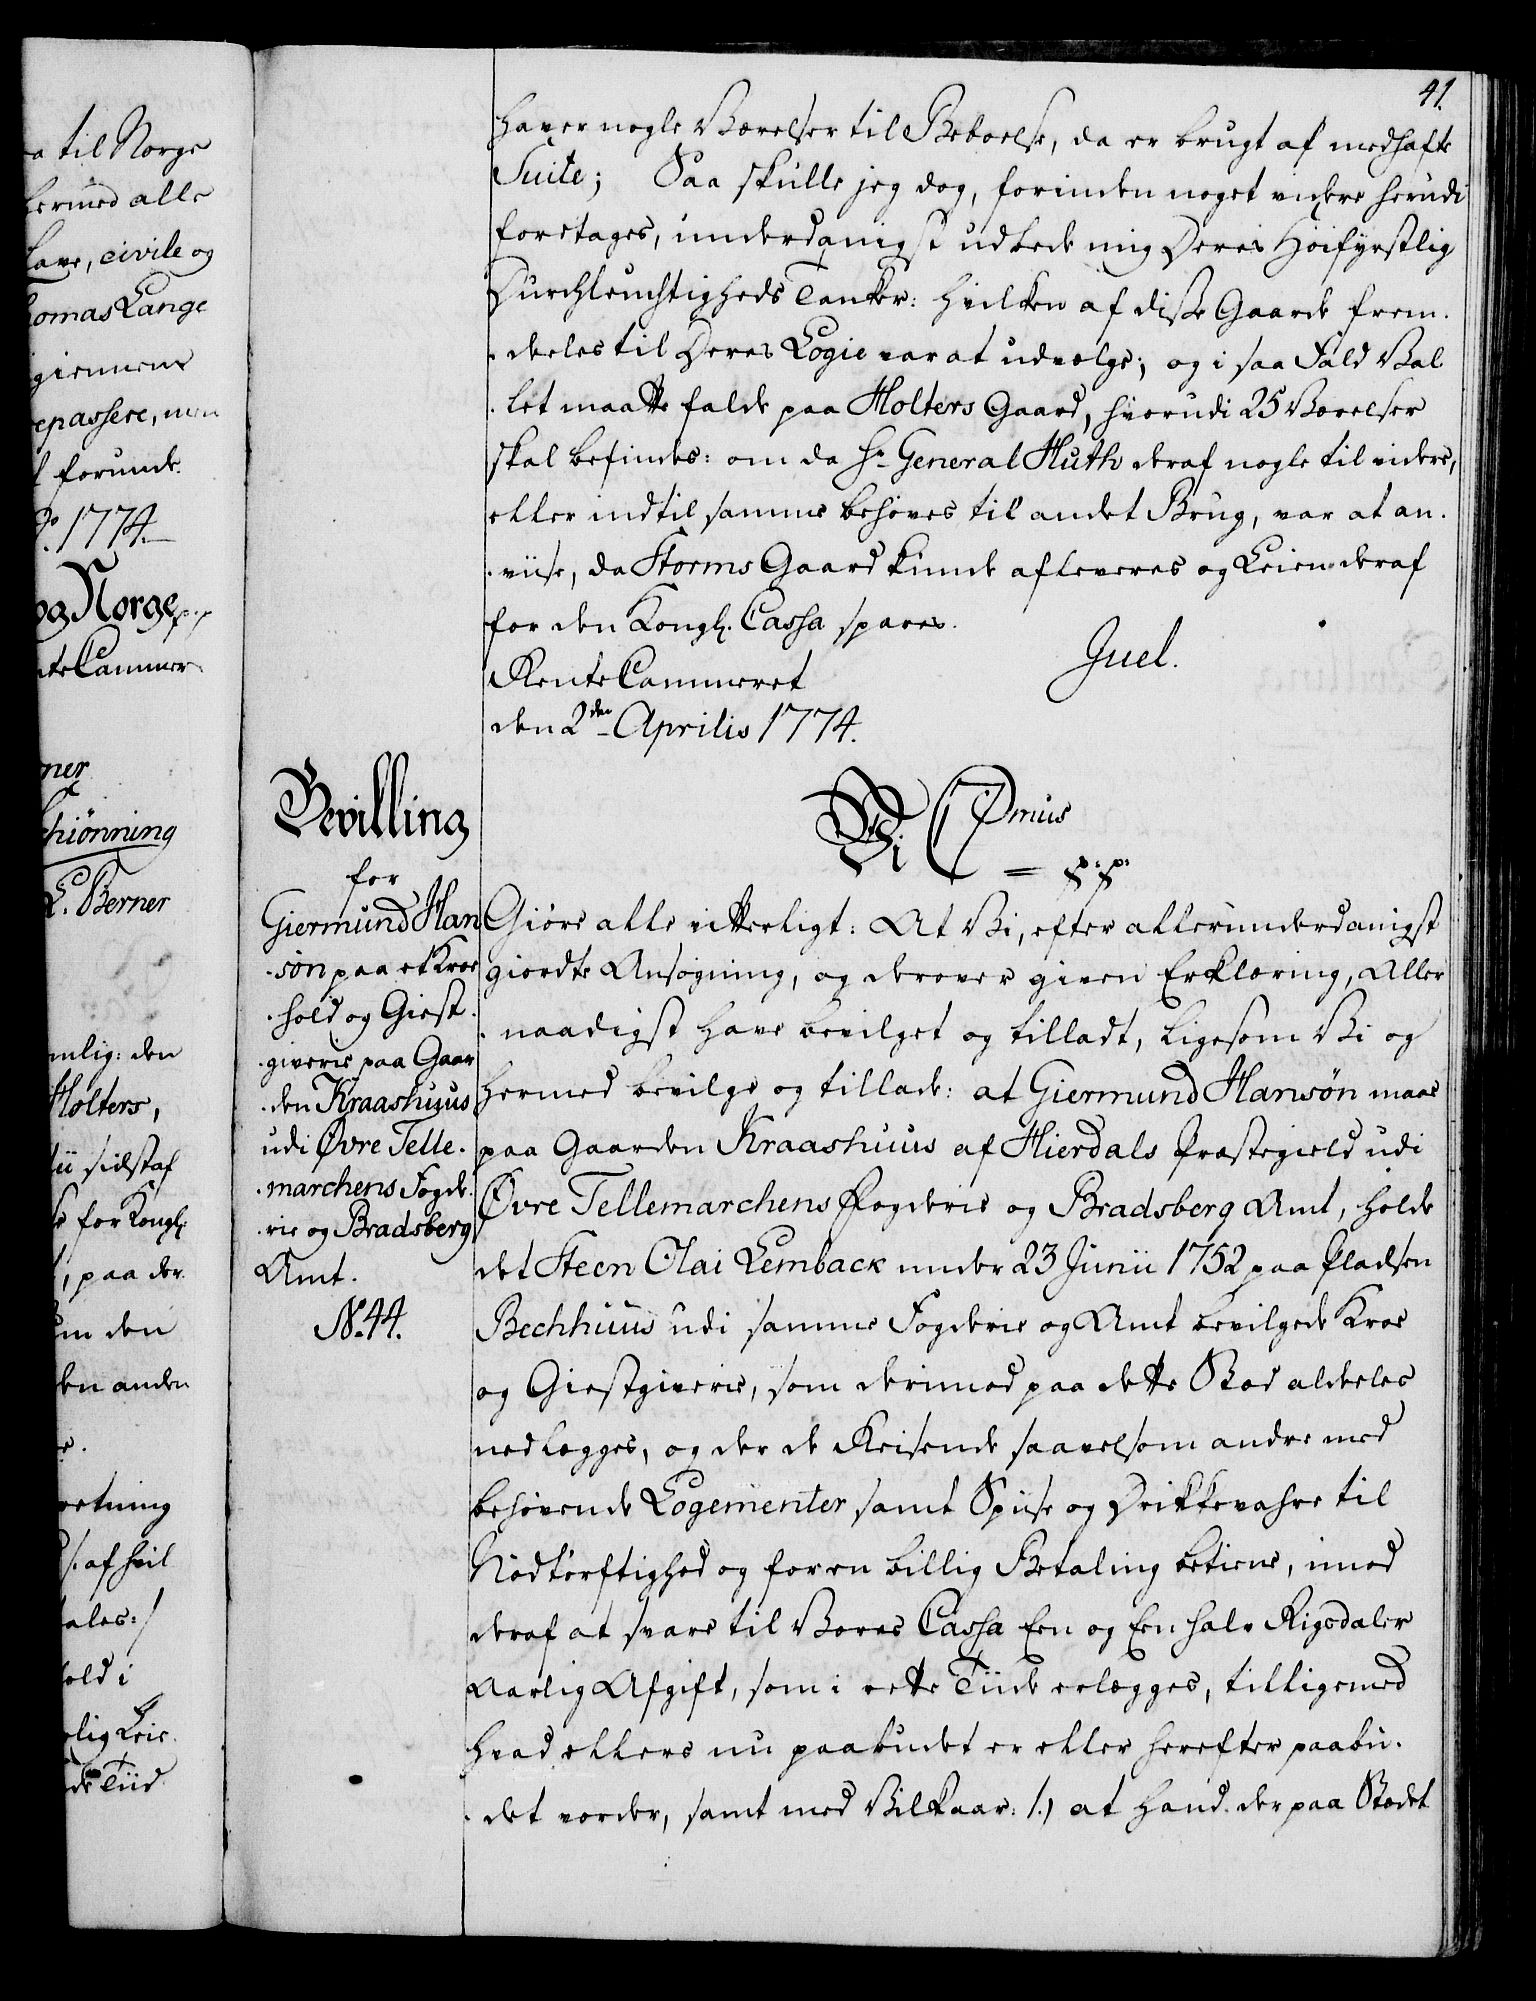 41.
haver nogle Værelser til Beboelse, da er brugt af medhafte
Suite; Saa skulle jeg dog, forinden noget videre herudi
foretages, underdanigst udbede mig Deres Høifyrstlig
Durchleuchtigheds Tanker: hvilken af disse Gaarde frem-
-deeles til Deres Logie var at udvælge; og i saa Fald Val
-let maatte falde paa Holters Gaard, hvorudi 25 Værelser
skal befindes: om da Hr. General Huth deraf nogle til videre,
eller indtil samme behøves til andet Brug, var at an-
-viise, da Storms Gaard kunde afleveres og Leien deraf
for den Kongl. Cassa spares.
Juel.
RenteCammeret
den 2den Aprilis 1774.
Bevilling
for
Giermund Han
-søn paa et Kroe
-hold og Giest-
-giverie paa Gaar
-den Kraashuus
udi Øvre Telle-
-marchens Fogde-
-rie og Bradsberg
Amt.
No. 44.
Vi C 7mus
= p. p.
Giøre alle vitterligt: At Vi, efter allerunderdanigst
giordte Ansøgning, og derover given Erklæring, Aller
-naadigst have bevilget og tilladt, ligesom Vi og
hermed bevilge og tillade: at Giermund Hansøn maae
paa Gaarden Kraashuus af Hierdals Præstegield udi
Øvre Tellemarchens Fogderie og Bradsberg Amt, holde
det Steen Olai Lemback under 23 Junii 1752 paa Pladsen
Bechhuus udi samme Fogderie og Amt bevilgede Kroe
og Giestgiverie, som derimod paa dette Stæd aldeeles
nedlægges, og der de Reisende saavelsom andre med
behøvende Logementer samt Spiise og Drikkevahre til
Nødtørftighed og for en billig Betaling betiene, imod
deraf at svare til Vores Cassa Een og Een halv Rigsdaler
Aarlig Afgift, som i rette Tiide erlægges, tilligemed
hvad ellers nu paabudet er eller herefter paabu-
-det vorder, samt med Vilkaar: 1.) at hand der paa Stædet